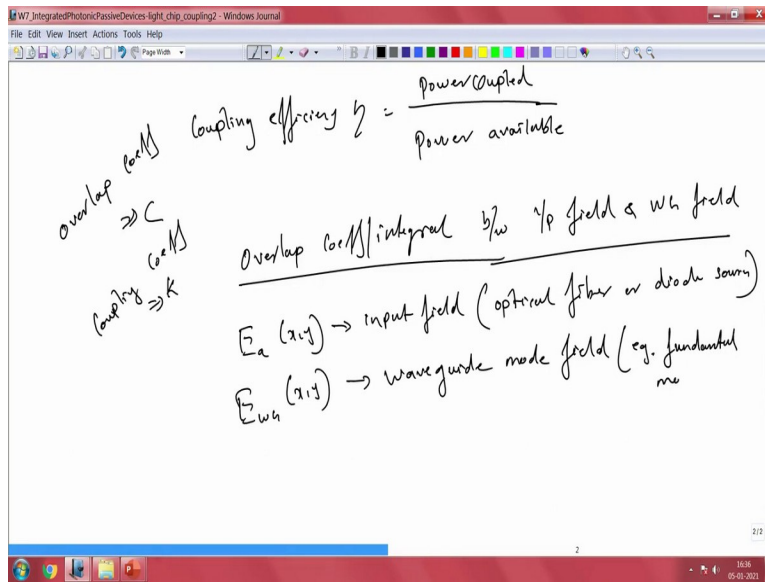 W7_IntegratedPhotonicPassiveDevices-light_chip_coupling2 - Windows Journal
File Edit View Insert Actions Tools Help
Page Width
Coupling efficiency η = Power coupled
Power available
Overlap coeff
⇒ C
Coupling coeff
⇒ K
Overlap coeff/integral b/w i/p field & WG field
E_a (x,y) → input field (optical fiber or diode source)
E_WG (x,y) → waveguide mode field (eg. fundamental
mo
2/2
2
16:36
05-01-2021